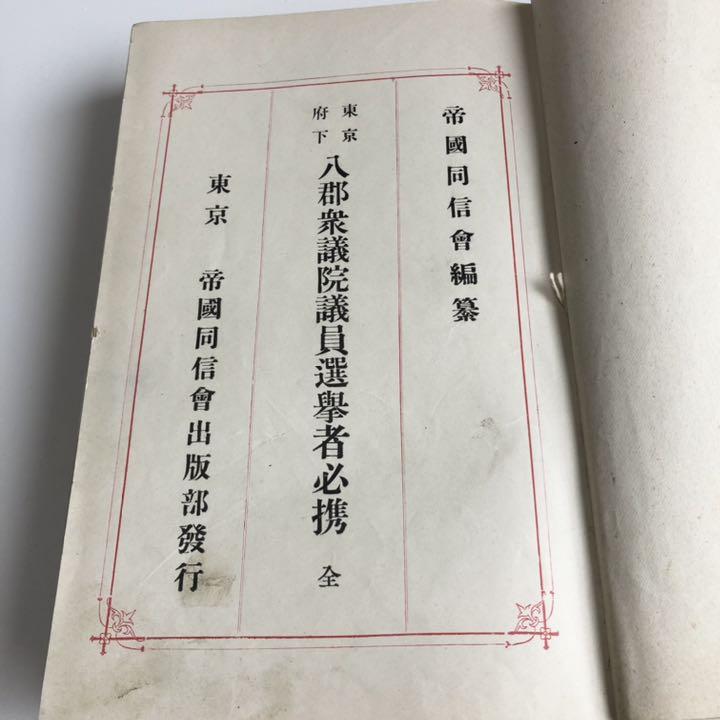 帝國同信會編纂
東京府下 八郡衆議院議員選擧者必携 全
東京 帝國同信會出版部發行